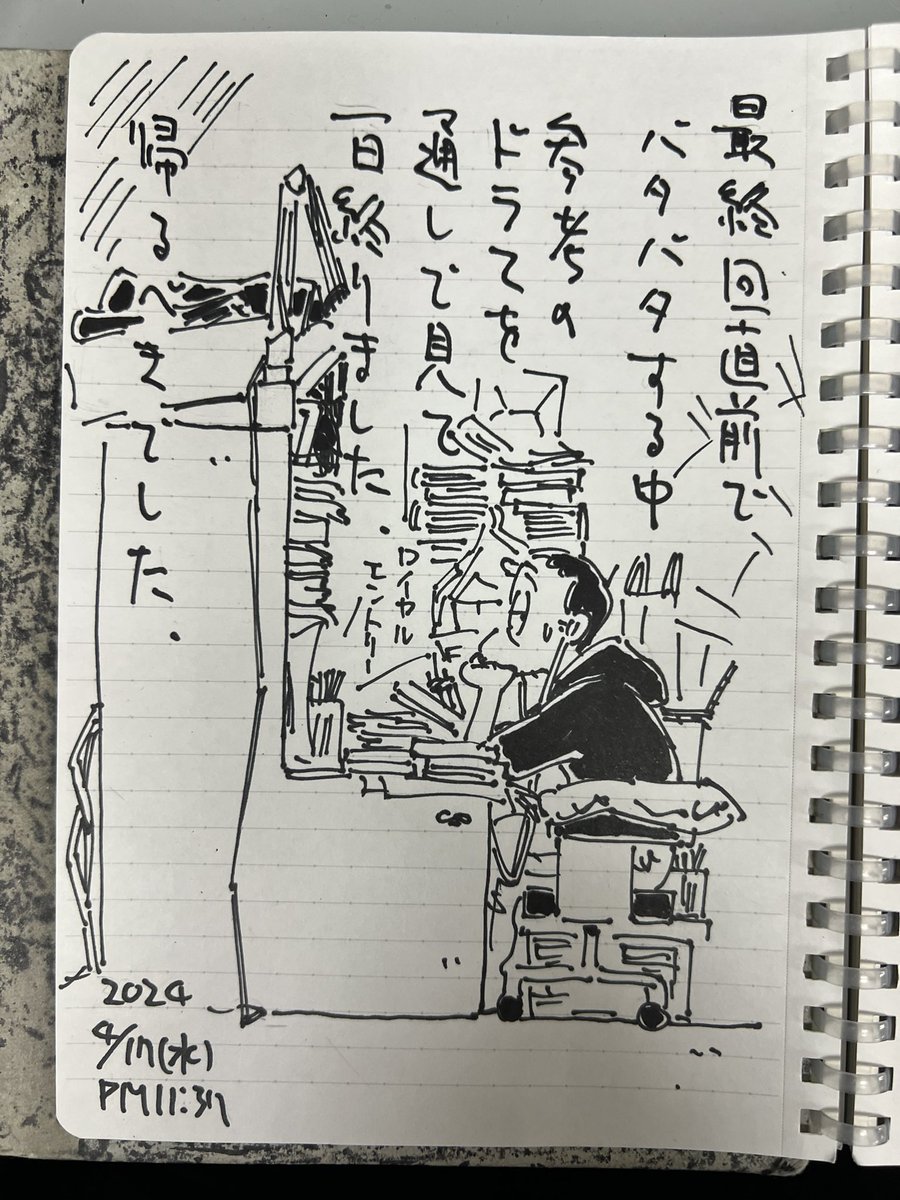 最終回直前で
バタバタする中
参考の
ドラてを
通しで見て
一日終りました.
ロイヤル
エントリー
帰る
べきでした.
2024
4/17(水)
PM11:37